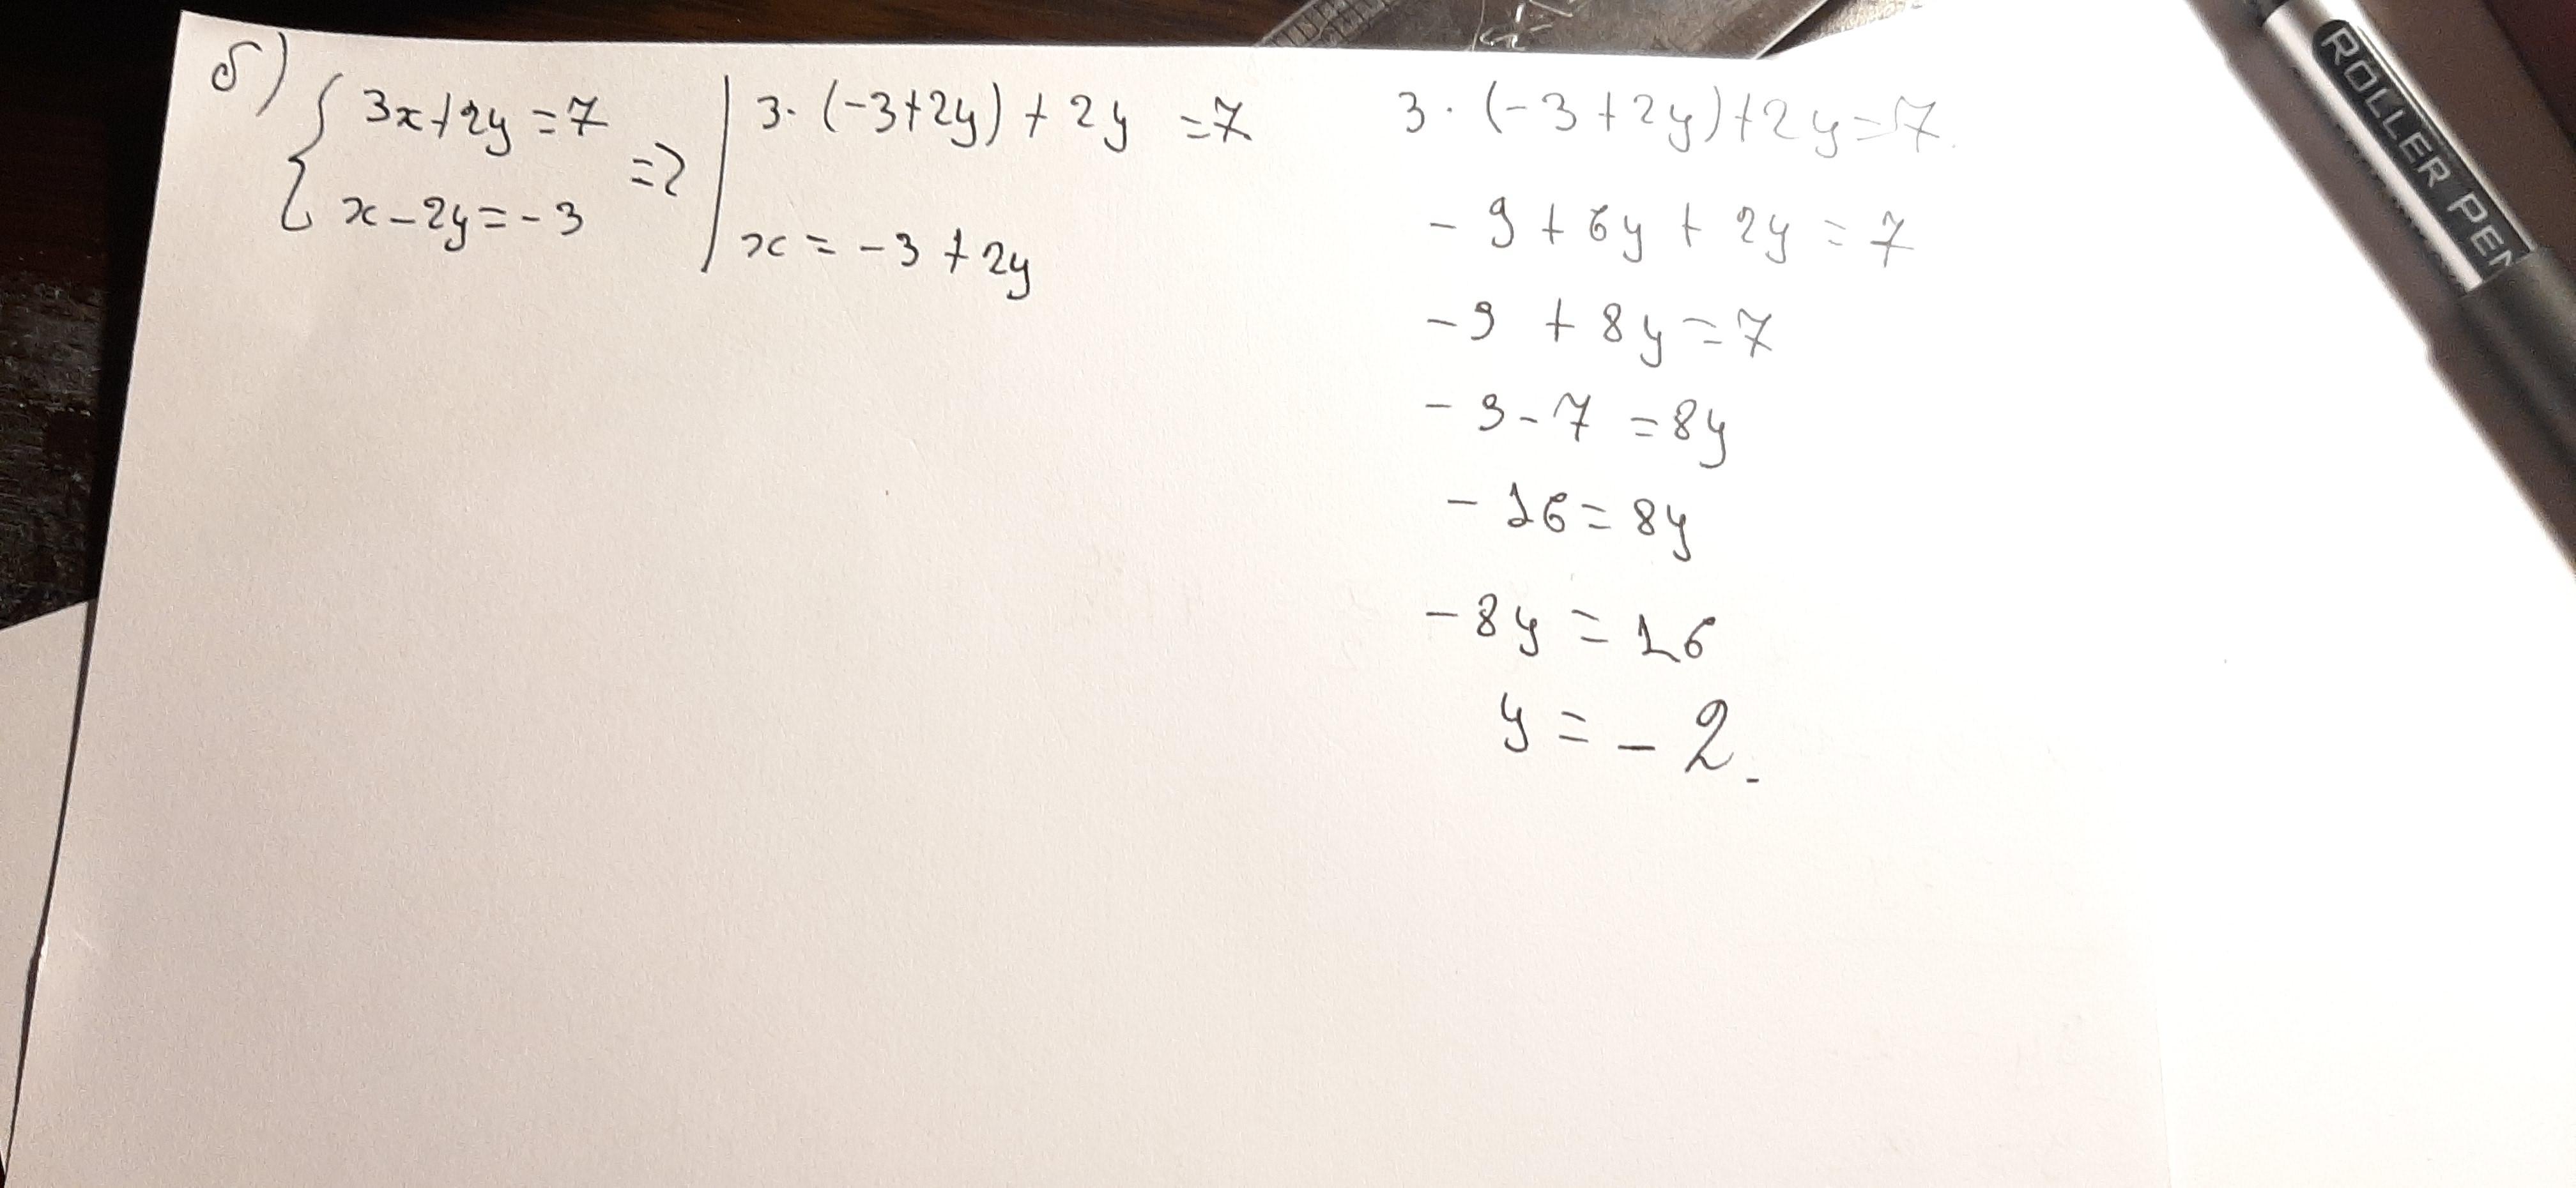 б) { 3x+2y=7 => | 3·(-3+2y)+2y =7
x-2y=-3 x=-3+2y
3·(-3+2y)+2y=7.
-9+6y+2y=7
-9+8y=7
-9-7=8y
-16=8y
-8y=16
y=-2.
ROLLER PEN